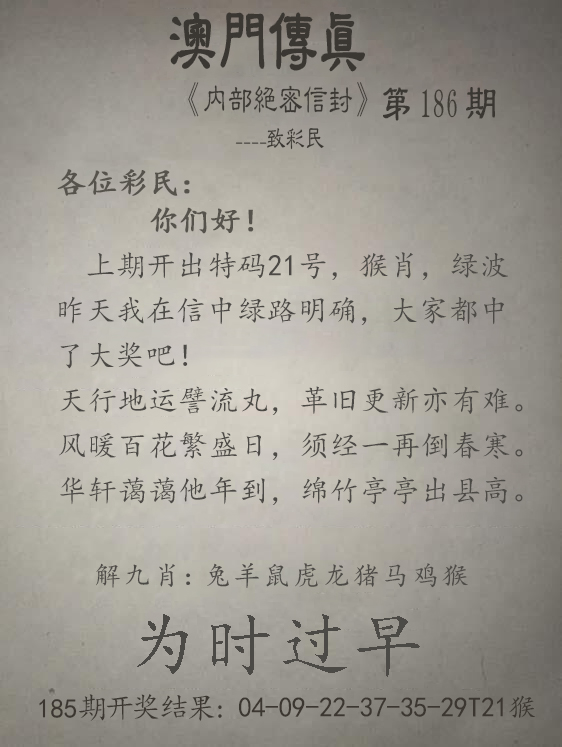 澳門傳真
《内部絕密信封》第186期
----致彩民
各位彩民：
你们好！
上期开出特码21号，猴肖，绿波
昨天我在信中绿路明确，大家都中
了大奖吧！
天行地运譬流丸，革旧更新亦有难。
风暖百花繁盛日，须经一再倒春寒。
华轩蔼蔼他年到，绵竹亭亭出县高。
解九肖：兔羊鼠虎龙猪马鸡猴
为时过早
185期开奖结果：04-09-22-37-35-29T21猴